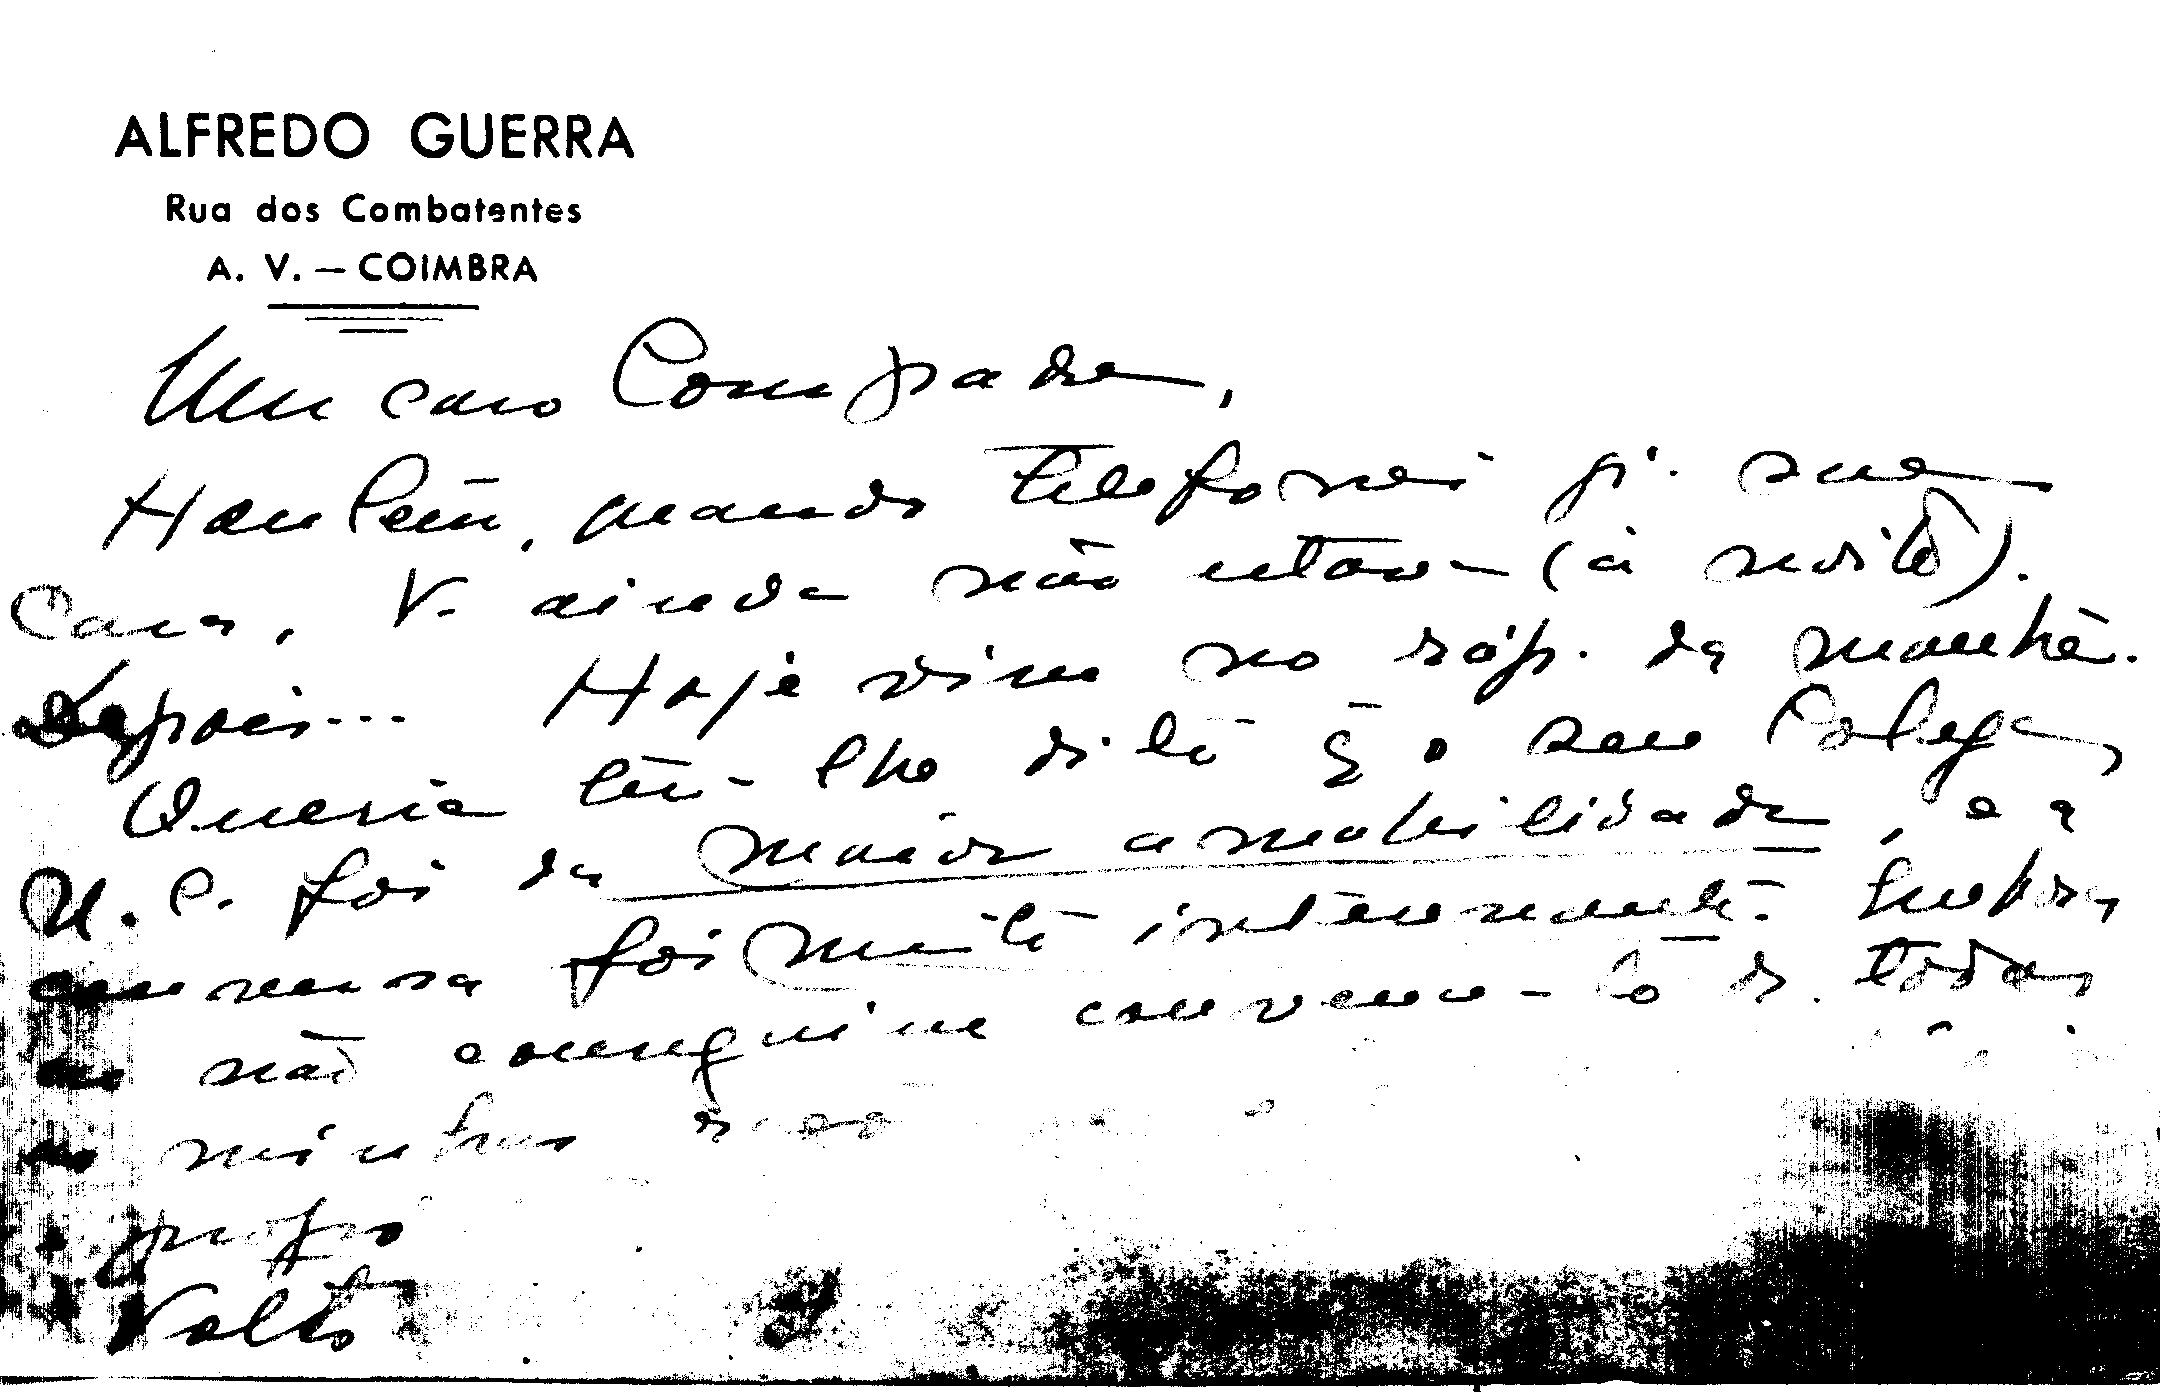 ALFREDO GUERRA
Rua dos Combatentes
A. V. — COIMBRA
Meu caro Compadre,
Hontem, quando telefonei p.ª sua
Casa, V. ainda não estava (à noite).
Depois... Hoje vim no ráp. da manhã.
Queria ter-lhe dito q̃ o seu Colega
N. C. foi da maior amabilidade, e a
conversa foi muito interessante. Embora
não conseguisse convencê-lo de todas
as minhas
Volto